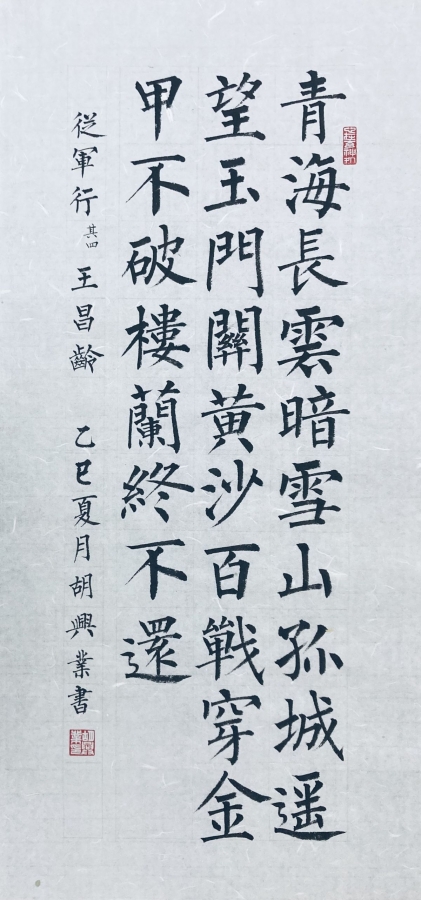 青海長雲暗雪山孤城遥
望玉門關黄沙百戰穿金
甲不破樓蘭終不還
從軍行 其四 王昌齡 乙巳夏月胡興業書